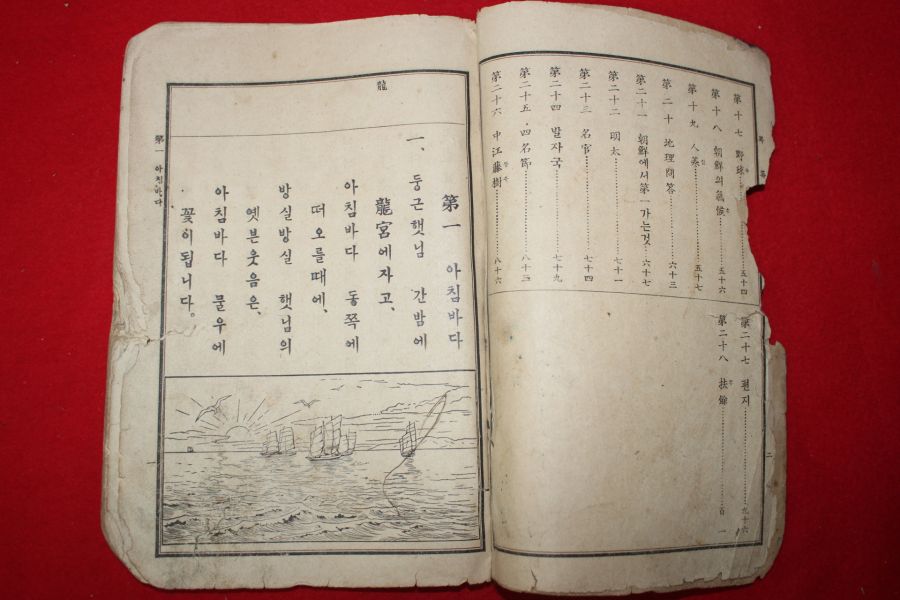 第十七 野球 五十四
第十八 朝鮮의氣候 五十六
第十九 人蔘 五十七
第二十 地理問答 六十三
第二十一 朝鮮에서第一가는것 六十七
第二十二 明太 七十一
第二十三 名官 七十四
第二十四 발자국 七十九
第二十五 四名節 八十三
第二十六 中江藤樹 八十六
第二十七 편지 九十六
第二十八 扶餘 百一
二
龍
第一 아침바다
一、둥근햇님 간밤에
龍宮에자고、
아침바다 동쪽에
떠오를때에、
방실방실 햇님의
옛븐웃음은、
아침바다 물우에
꽃이됩니다。
第一 아침바다
一